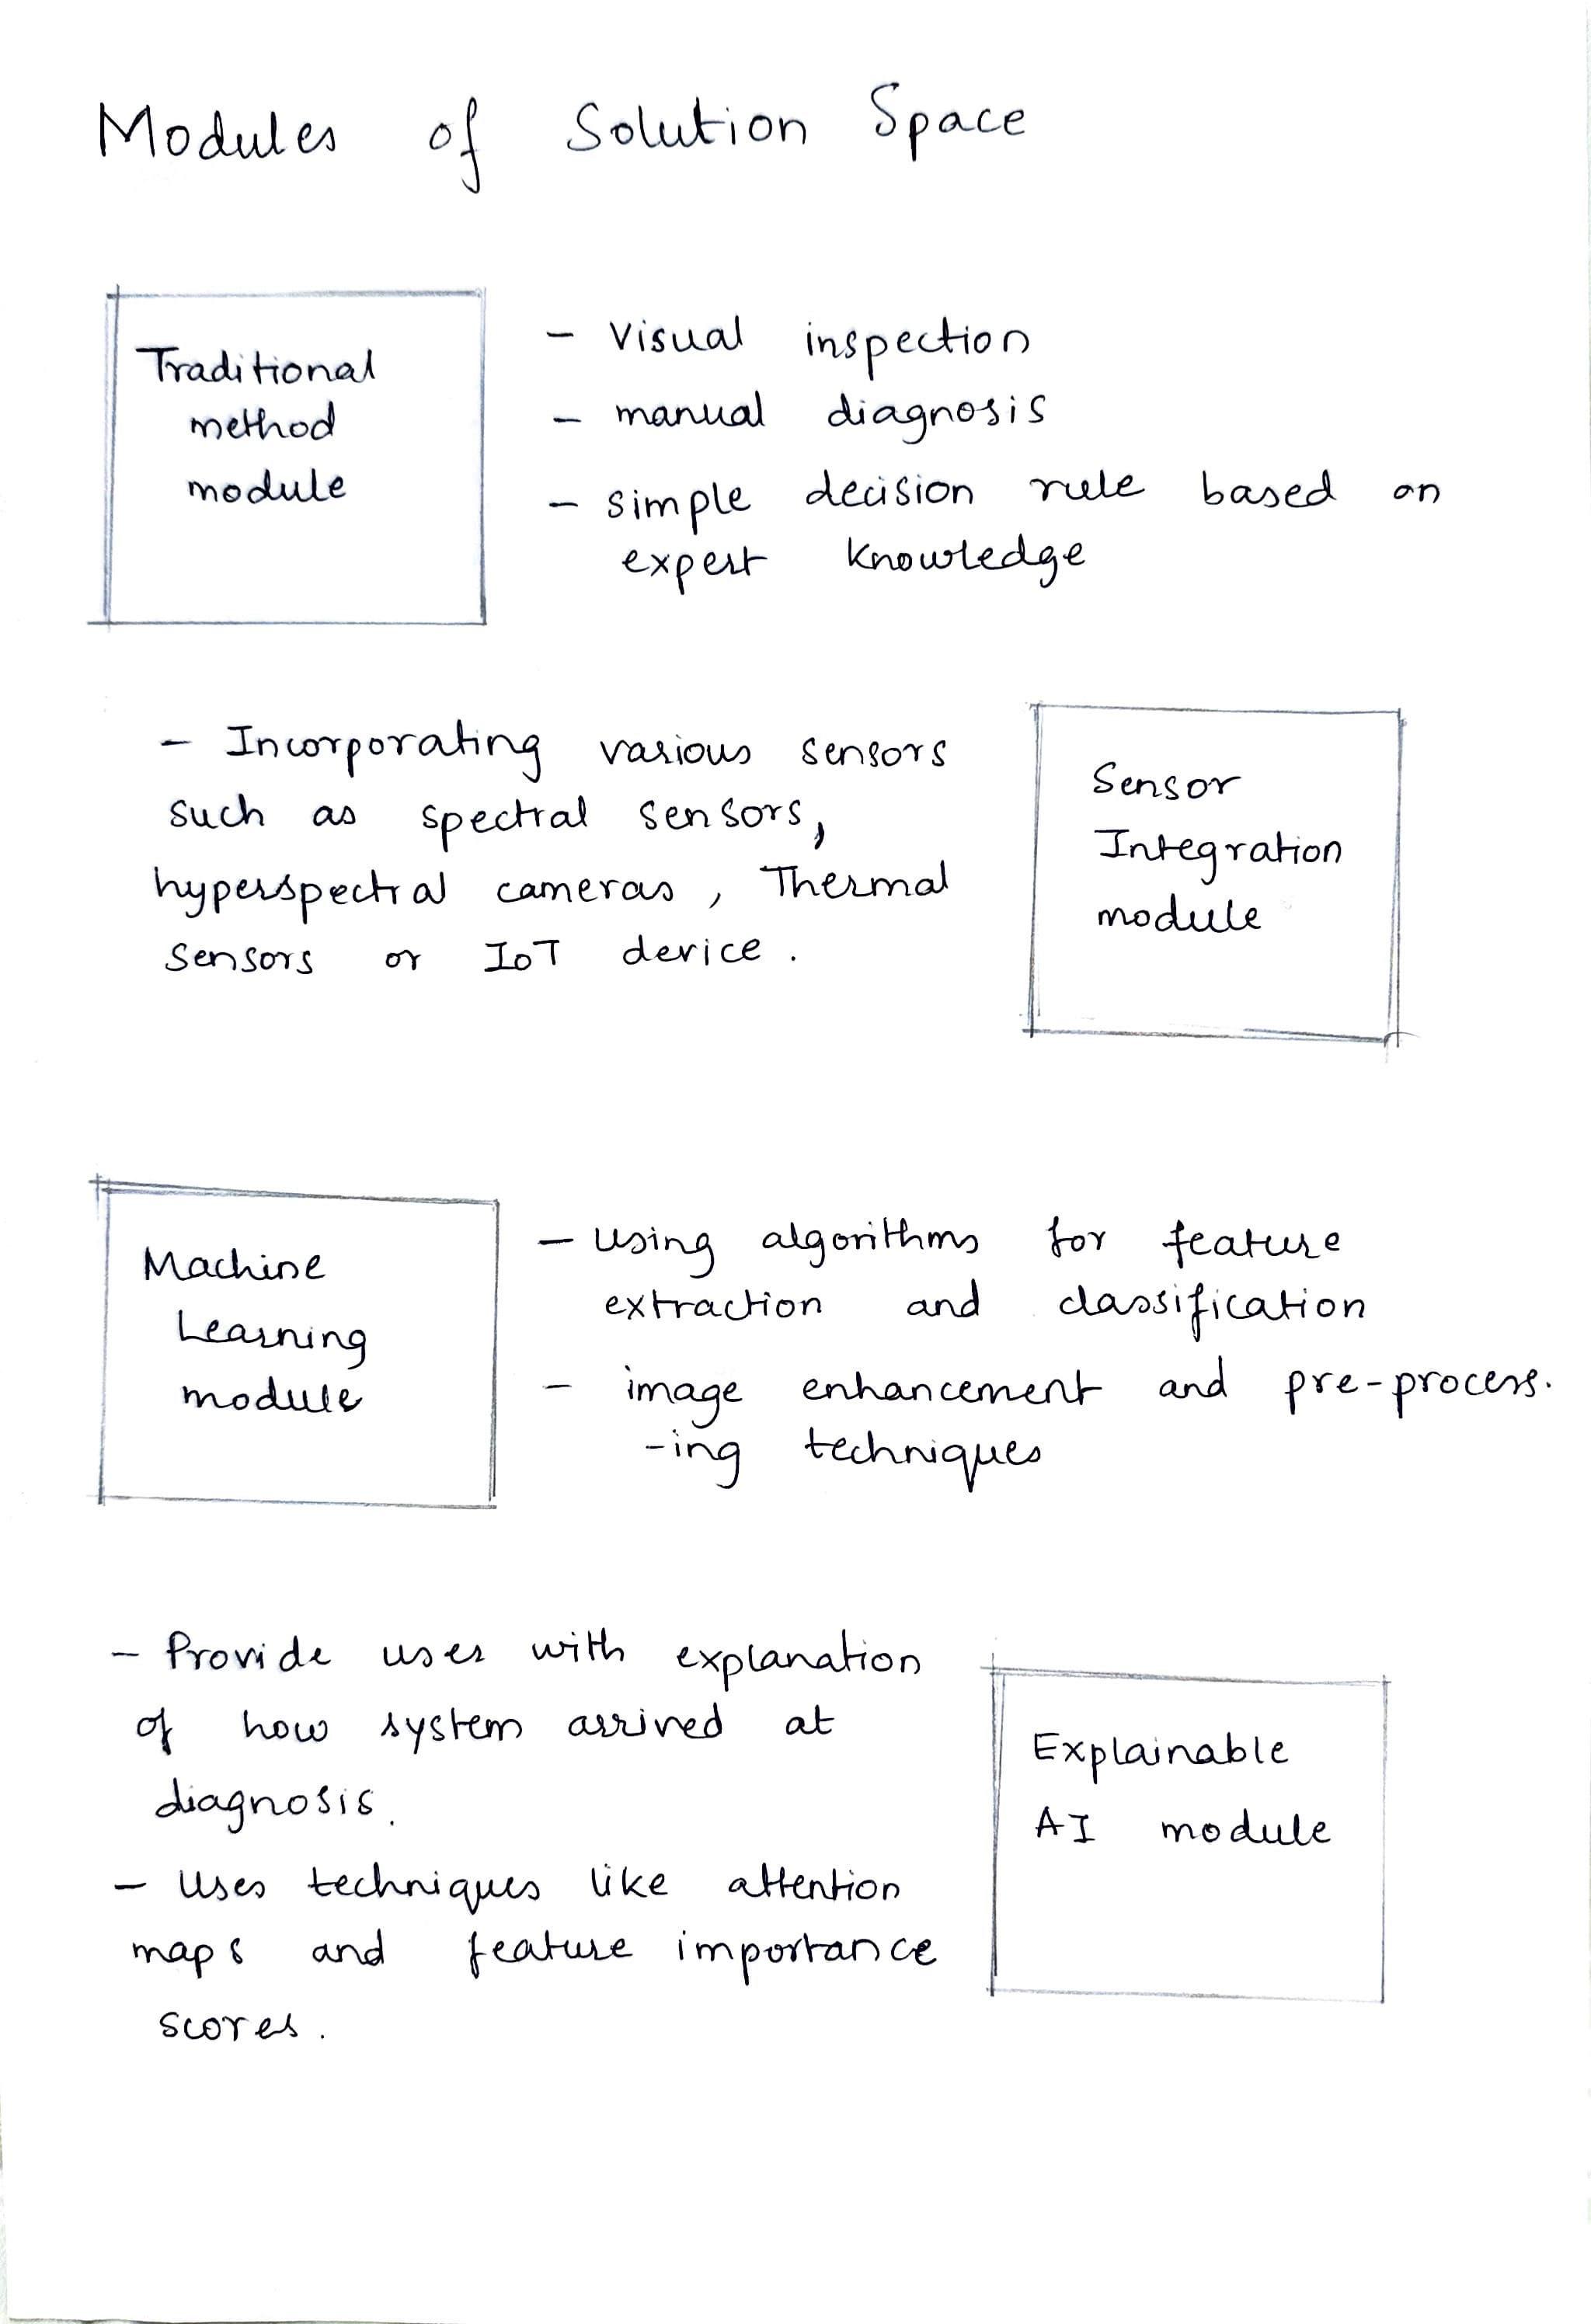 Modules of Solution Space
Traditional
method
module
- Visual inspection
- manual diagnosis
- simple decision rule based on
expert knowledge
- Incorporating various sensors
such as spectral sensors,
hyperspectral cameras, Thermal
sensors or IoT device.
Sensor
Integration
module
Machine
Learning
module
- Using algorithms for feature
extraction and classification
- image enhancement and pre-process.
-ing techniques
- Provide user with explanation
of how system arrived at
diagnosis.
- Uses techniques like attention
maps and feature importance
scores.
Explainable
AI module